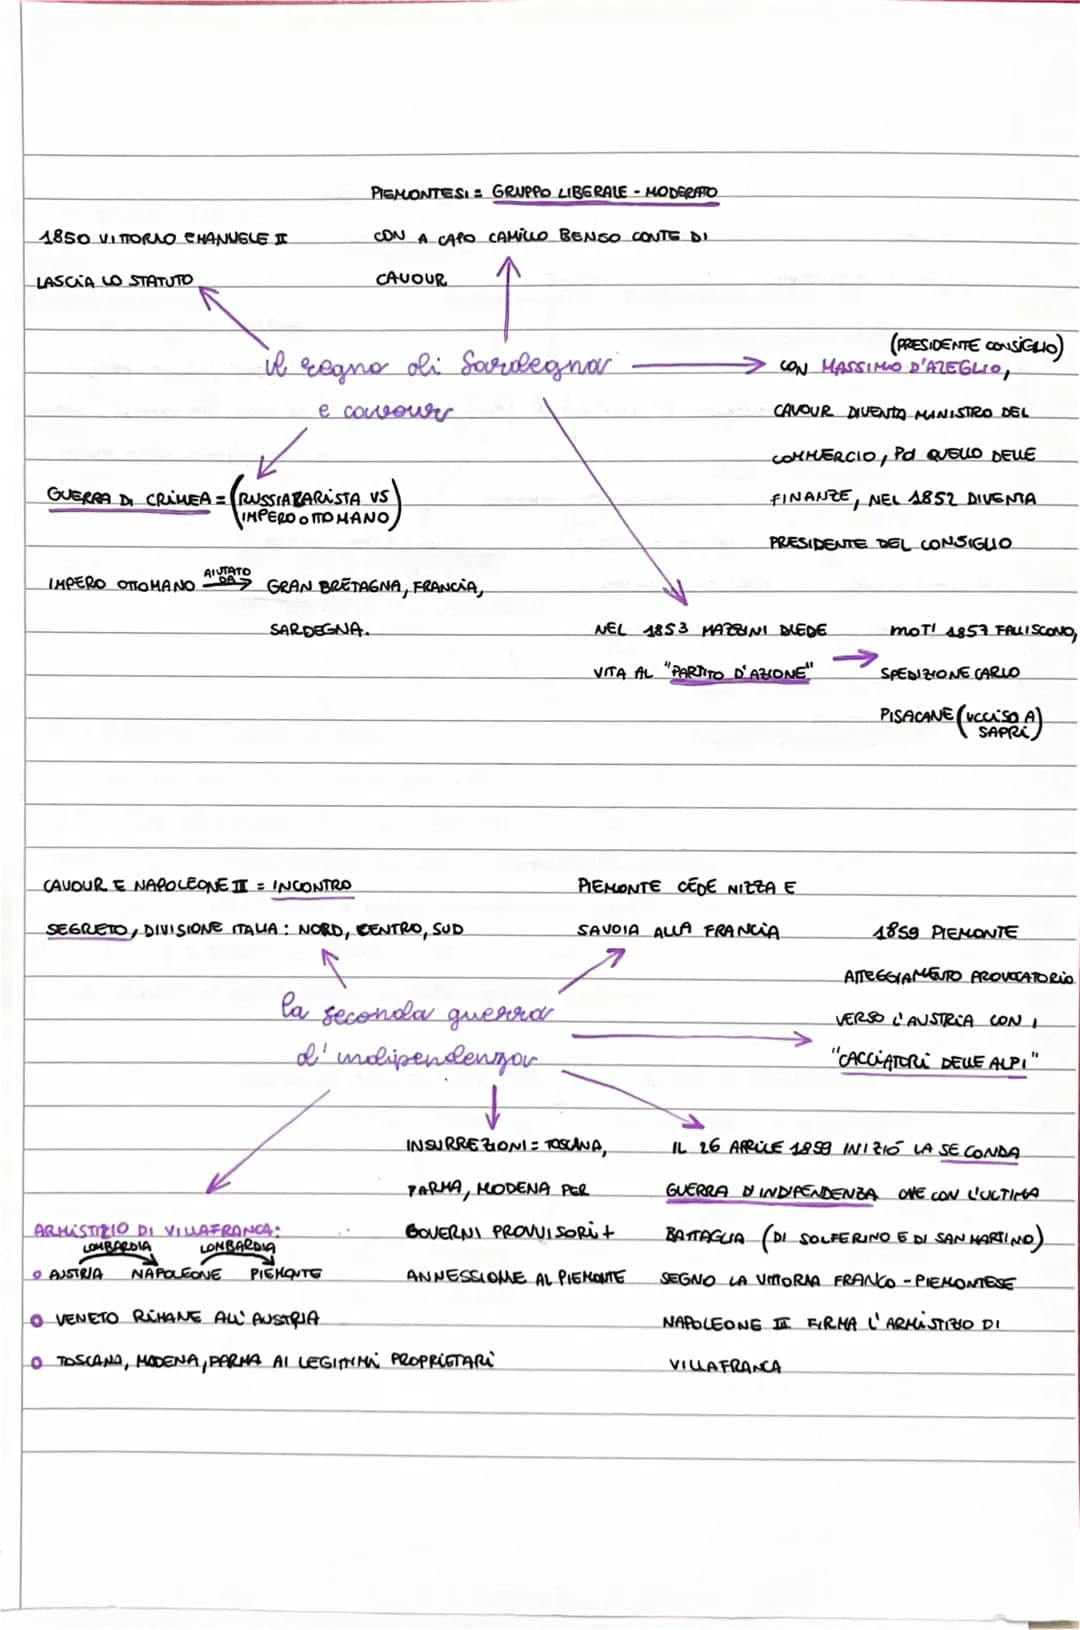 PIEMONTESI = GRUPPO LIBERALE - MODERATO
CON A CAPO CAMILLO BENSO CONTE DI
CAVOUR
1850 VITTORIO EMANUELE II
LASCIA LO STATUTO
il regno di Sardegna
e cavour
(PRESIDENTE CONSIGLIO)
CON MASSIMO D'AZEGLIO,
CAVOUR DIVENTA MINISTRO DEL
COMMERCIO, POI QUELLO DELLE
FINANZE, NEL 1852 DIVENTA
PRESIDENTE DEL CONSIGLIO
GUERRA DI CRIMEA = (RUSSIA ZARISTA VS
IMPERO OTTOMANO)
IMPERO OTTOMANO AIUTATO DA GRAN BRETAGNA, FRANCIA,
SARDEGNA.
NEL 1853 MAZZINI DIEDE
VITA AL "PARTITO D'AZIONE"
MOTI 1857 FALLISCONO,
SPEDIZIONE CARLO
PISACANE (UCCISO A
SAPRI)
CAVOUR E NAPOLEONE II = INCONTRO
SEGRETO, DIVISIONE ITALIA: NORD, CENTRO, SUD
PIEMONTE CEDE NIZZA E
SAVOIA ALLA FRANCIA
la seconda guerra
d'indipendenza
1859 PIEMONTE
ATTEGGIAMENTO PROVOCATORIO
VERSO L'AUSTRIA CON I
"CACCIATORI DELLE ALPI"
INSURREZIONI = TOSCANA,
PARMA, MODENA PER
GOVERNI PROVVISORI +
ANNESSIONE AL PIEMONTE
IL 26 APRILE 1859 INIZIÓ LA SECONDA
GUERRA D'INDIPENDENZA CHE CON L'ULTIMA
BATTAGLIA (DI SOLFERINO E DI SAN MARTINO)
SEGNO LA VITTORIA FRANCO - PIEMONTESE
NAPOLEONE III FIRMA L'ARMISTIZIO DI
VILLAFRANCA
ARMISTIZIO DI VILLAFRANCA:
LOMBARDIA LOMBARDIA
AUSTRIA NAPOLEONE PIEMONTE
VENETO RIMANE ALL'AUSTRIA
TOSCANA, MODENA, PARMA AI LEGITTIMI PROPRIETARI